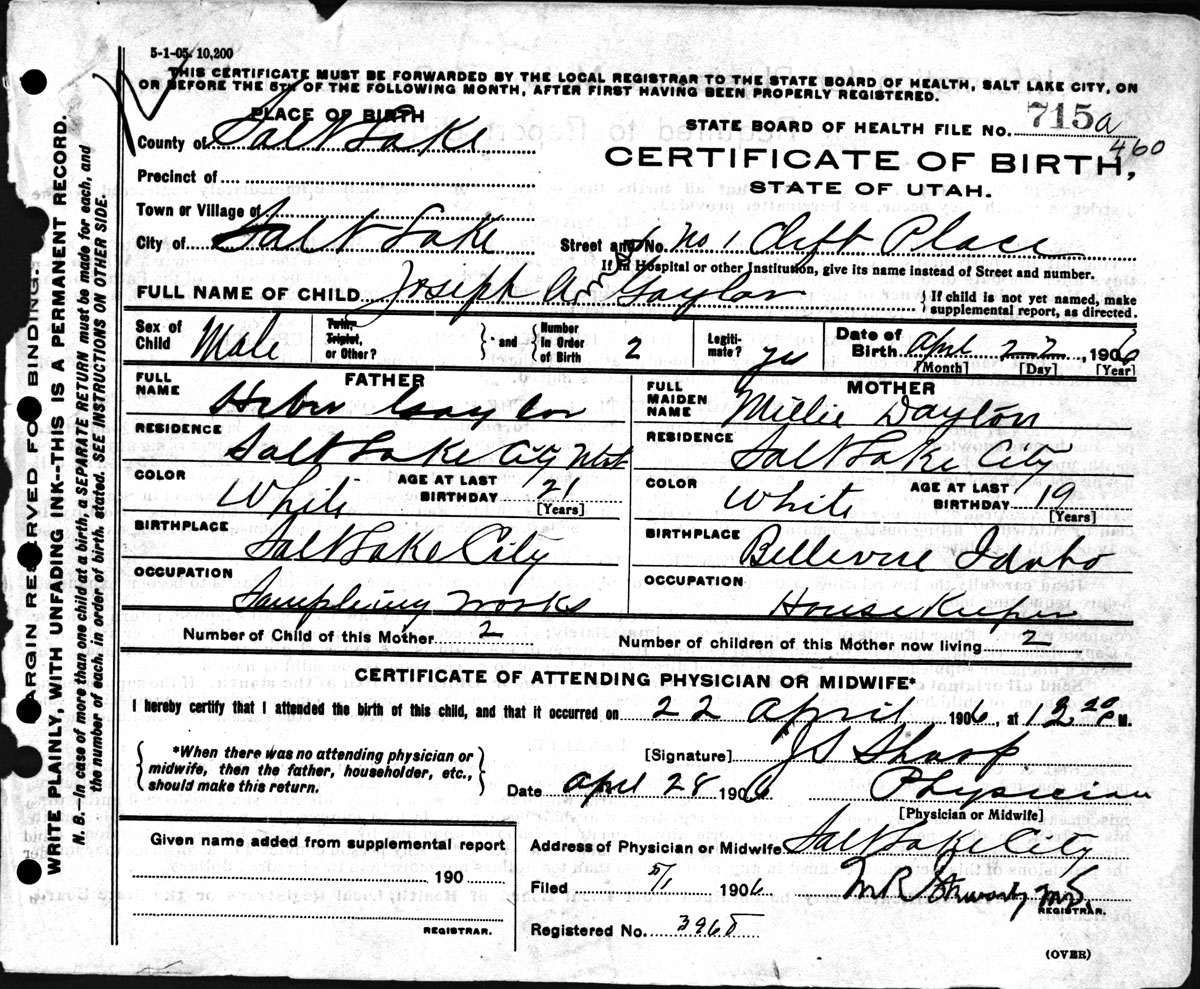 5-1-05. 10,200
THIS CERTIFICATE MUST BE FORWARDED BY THE LOCAL REGISTRAR TO THE STATE BOARD OF HEALTH, SALT LAKE CITY, ON
OR BEFORE THE 5TH OF THE FOLLOWING MONTH, AFTER FIRST HAVING BEEN PROPERLY REGISTERED.
PLACE OF BIRTH
STATE BOARD OF HEALTH FILE NO. 715a
460
County of Salt Lake
CERTIFICATE OF BIRTH,
STATE OF UTAH.
Precinct of
Town or Village of
City of Salt Lake Street and No. No 1 Clift Place
If in Hospital or other Institution, give its name instead of Street and number.
FULL NAME OF CHILD Joseph A. Gaylor
{ If child is not yet named, make
supplemental report, as directed.
Sex of Child Male
Twin, Triplet, or Other?
* and
Number In Order of Birth 2
Legiti-mate? yes
Date of Birth April 22, 1906
[Month] [Day] [Year]
FATHER
FULL NAME Heber Gaylor
MOTHER
FULL MAIDEN NAME Millie Dayton
RESIDENCE Salt Lake City Utah
RESIDENCE Salt Lake City
COLOR White AGE AT LAST BIRTHDAY 21
[Years]
COLOR White AGE AT LAST BIRTHDAY 19
[Years]
BIRTHPLACE Salt Lake City
BIRTHPLACE Bellevue Idaho
OCCUPATION Sampling Works
OCCUPATION House Keeper
Number of Child of this Mother 2
Number of children of this Mother now living 2
CERTIFICATE OF ATTENDING PHYSICIAN OR MIDWIFE*
I hereby certify that I attended the birth of this child, and that it occurred on 22 April 1906, at 12 20 P M.
*When there was no attending physician or
midwife, then the father, householder, etc.,
should make this return.
[Signature] J S Sharp
Date April 28 1906 Physician
[Physician or Midwife]
Given name added from supplemental report
190
REGISTRAR.
Address of Physician or Midwife Salt Lake City
Filed 5/1 1906
REGISTRAR.
Registered No. 3965
(OVER)
MARGIN RESERVED FOR BINDING.
WRITE PLAINLY, WITH UNFADING INK--THIS IS A PERMANENT RECORD.
N. B.--In case of more than one child at a birth, a SEPARATE RETURN must be made for each, and
the number of each, in order of birth, stated. SEE INSTRUCTIONS ON OTHER SIDE.